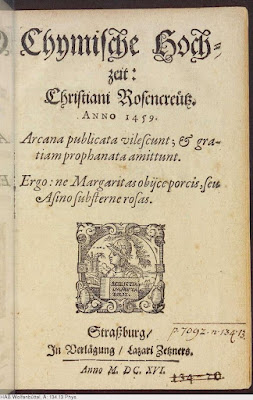 Chymische Hoch-
zeit:
Christiani Rosencreütz.
ANNO 1459.
Arcana publicata vilescunt; & gra-
tiam prophanata amittunt.
Ergo: ne Margaritas obijce porcis, seu
Asino substerne rosas.
SCIENTIA
IMMUTA
BILIS.
Straßburg/
In Verlägung / Lazari Zetzners.
Anno M. DC. XVI.
p. 7092. n. 134.13.
134-70
HAB Wolfenbüttel, A: 134.13 Phys.